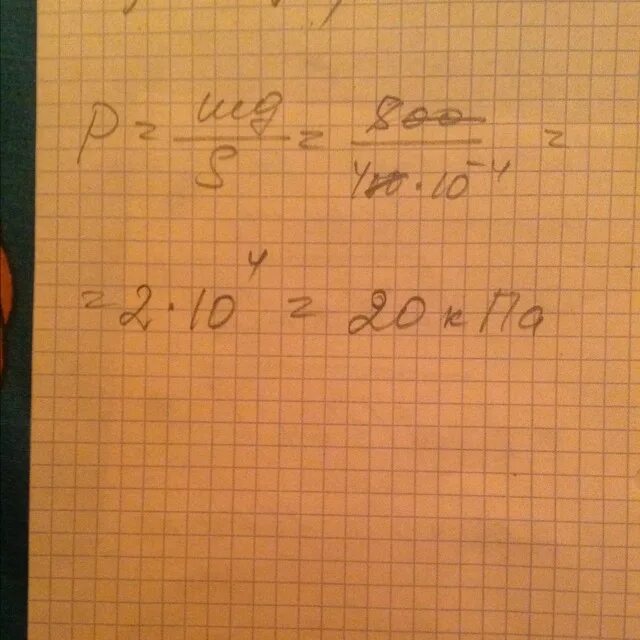 p = mg/S = 800/400·10⁻⁴ =
= 2·10⁴ = 20 кПа